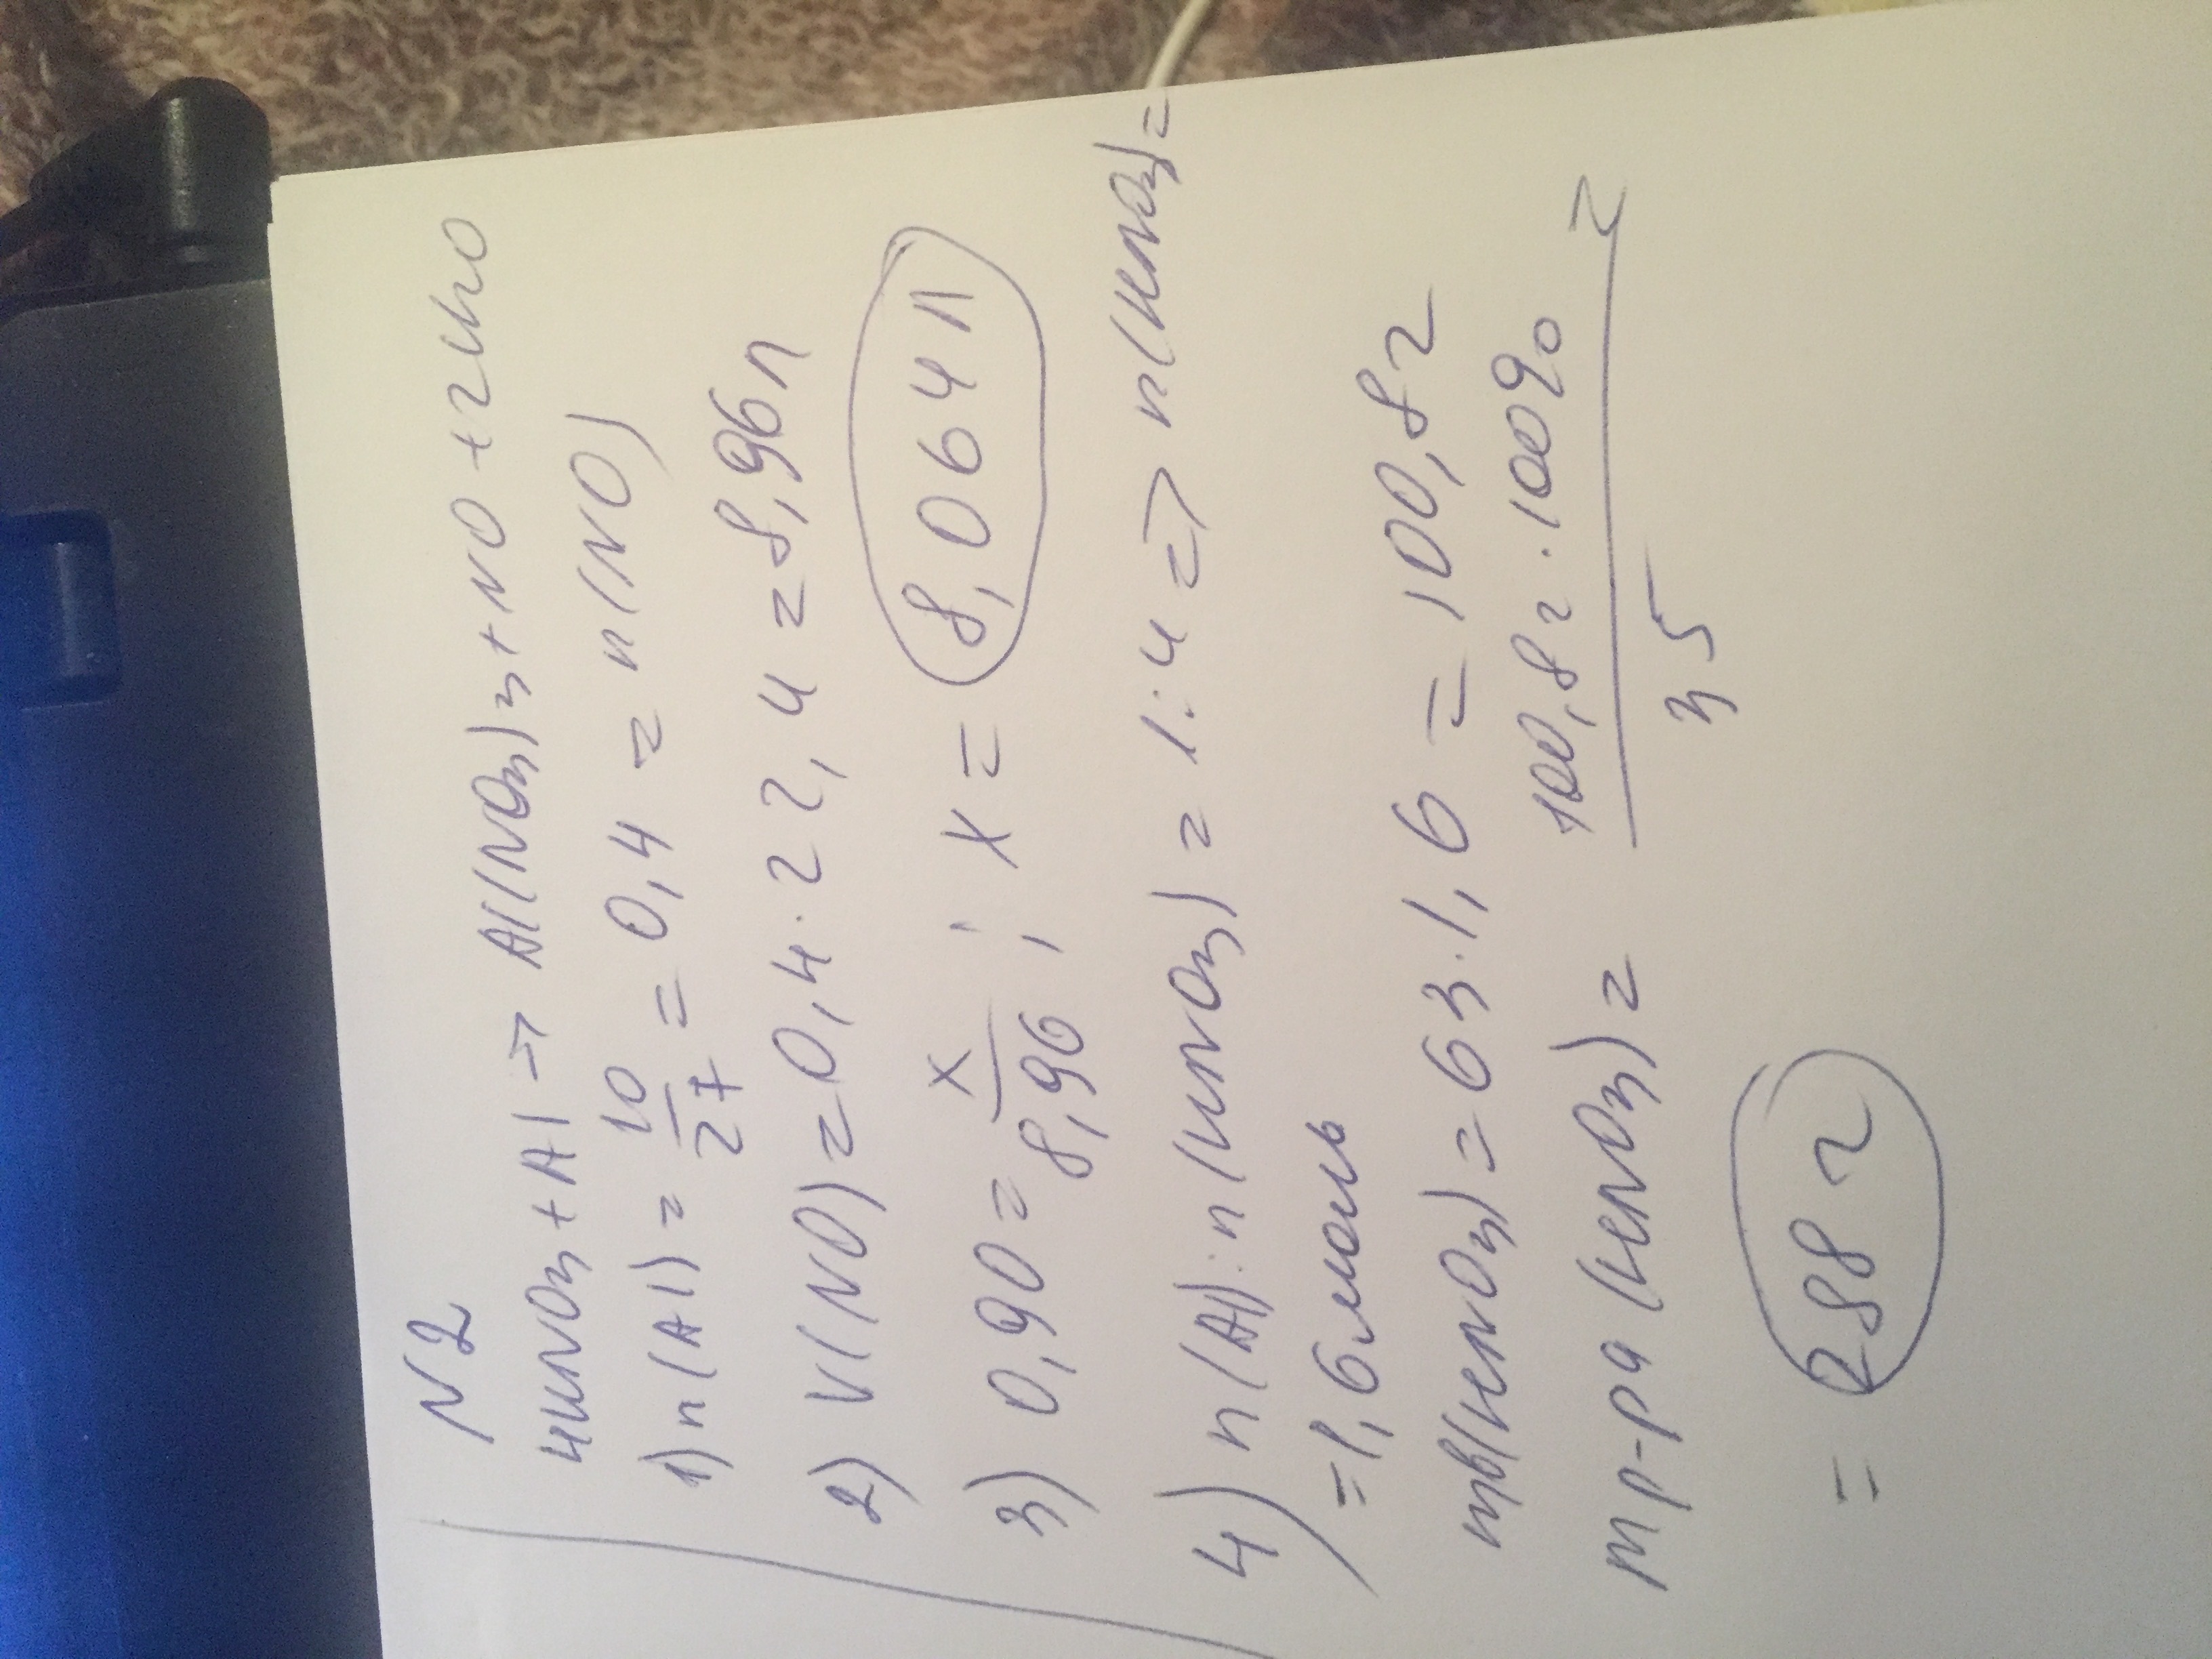 N2
4HNO3 + Al → Al(NO3)3 + NO + 2H2O
1) n(Al) = 10/27 = 0,4 = n(NO)
2) V(NO) = 0,4 · 22,4 = 8,96 л
3) 0,90 = x/8,96 ; x = 8,064 л
4) n(Al) : n(HNO3) = 1:4 => n(HNO3) =
= 1,6 моль
mв(HNO3) = 63 · 1,6 = 100,8 г
m р-ра (HNO3) = 100,8 г · 100% / 35 =
= 288 г